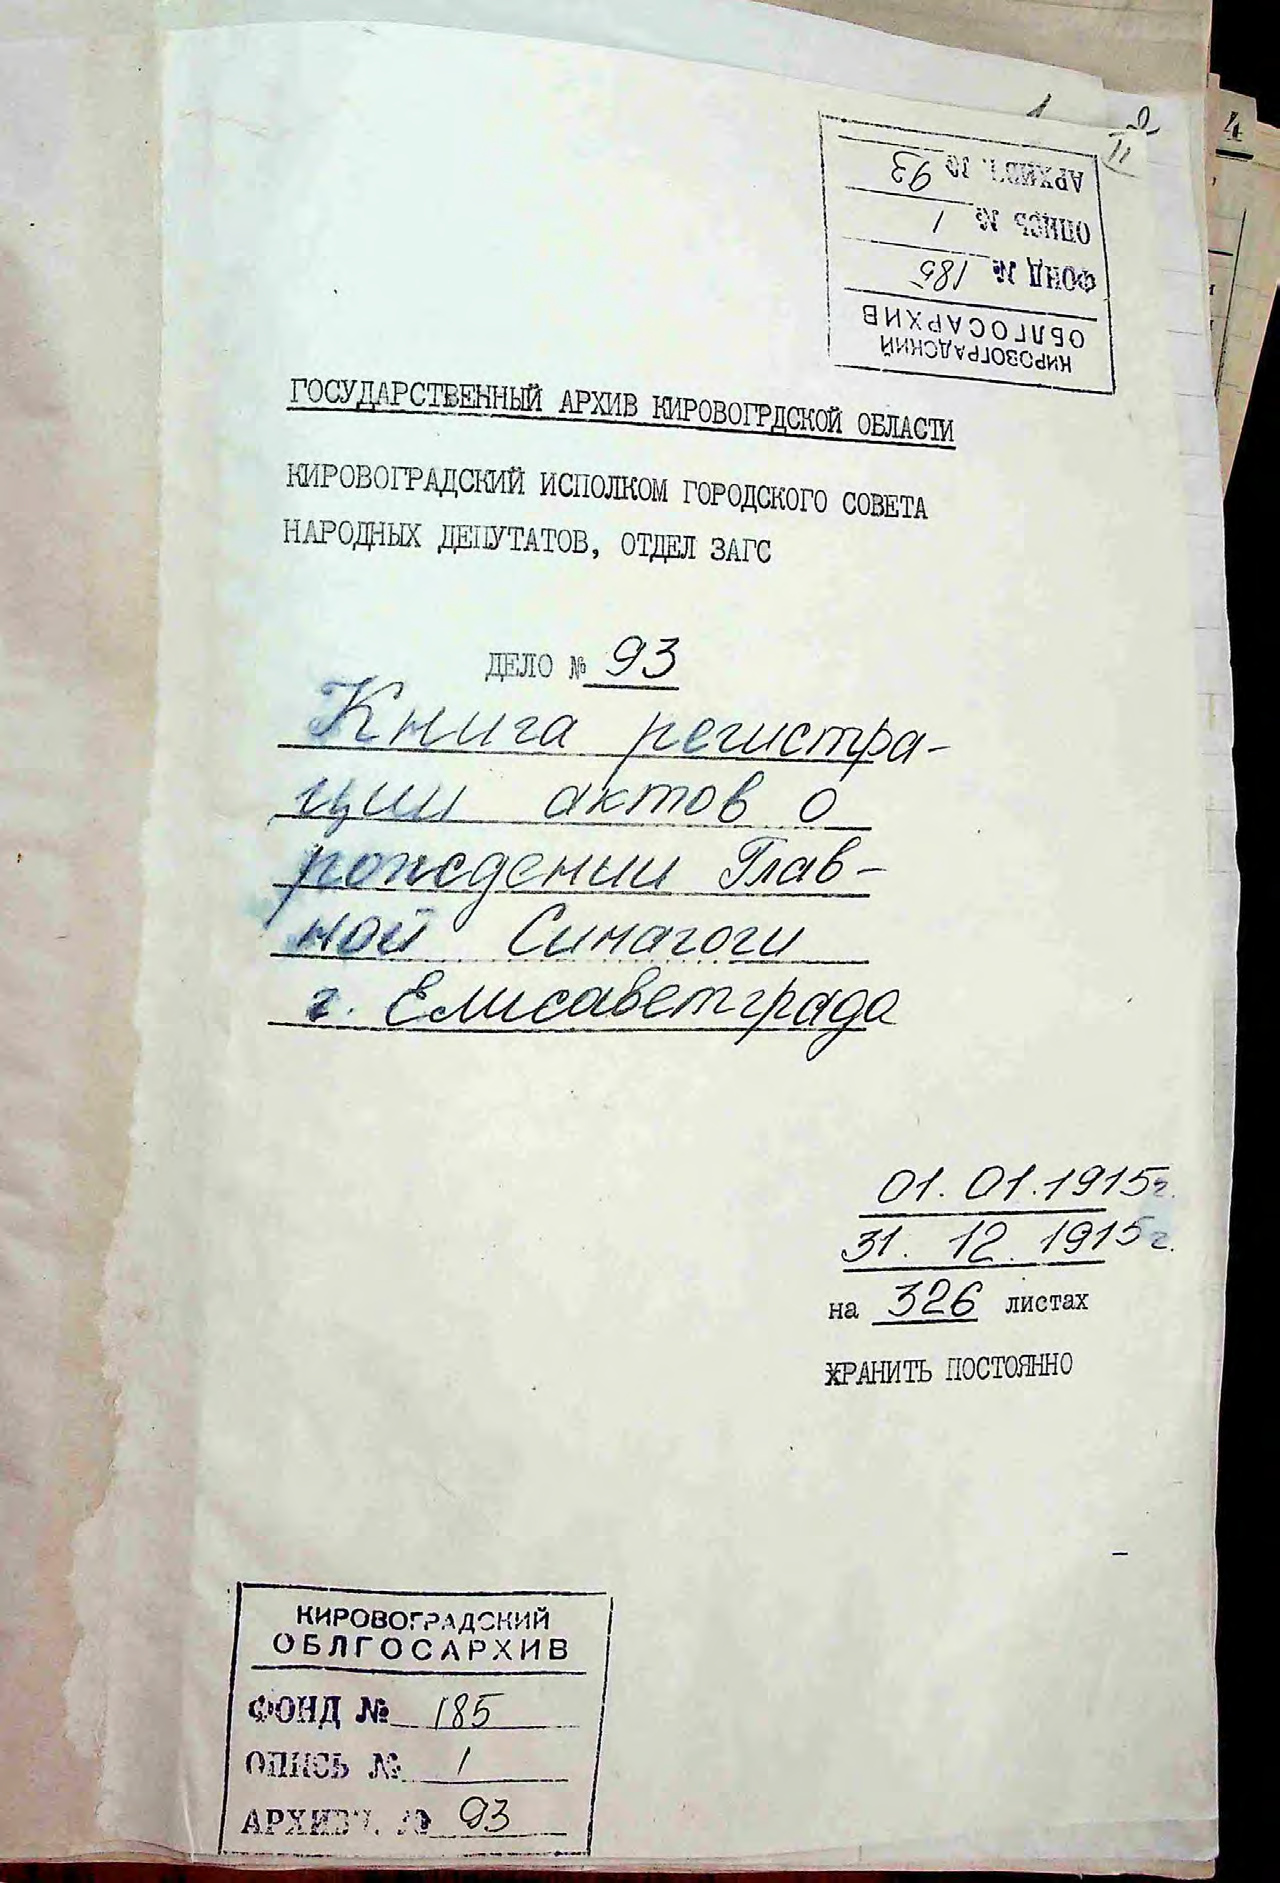 4
КИРОВОГРАДСКИЙ
ОБЛГОСАРХИВ
ФОНД № 185
ОПИСЬ № 1
АРХИВН. № 93
ГОСУДАРСТВЕННЫЙ АРХИВ КИРОВОГРДСКОЙ ОБЛАСТИ
КИРОВОГРАДСКИЙ ИСПОЛКОМ ГОРОДСКОГО СОВЕТА
НАРОДНЫХ ДЕПУТАТОВ, ОТДЕЛ ЗАГС
ДЕЛО № 93
Книга регистра-
ции актов о
рождении Глав-
ной Синагоги
г. Елисаветграда
01.01.1915г.
31.12.1915г.
на 326 листах
ХРАНИТЬ ПОСТОЯННО
КИРОВОГРАДСКИЙ
ОБЛГОСАРХИВ
ФОНД № 185
ОПИСЬ № 1
АРХИВН. № 93